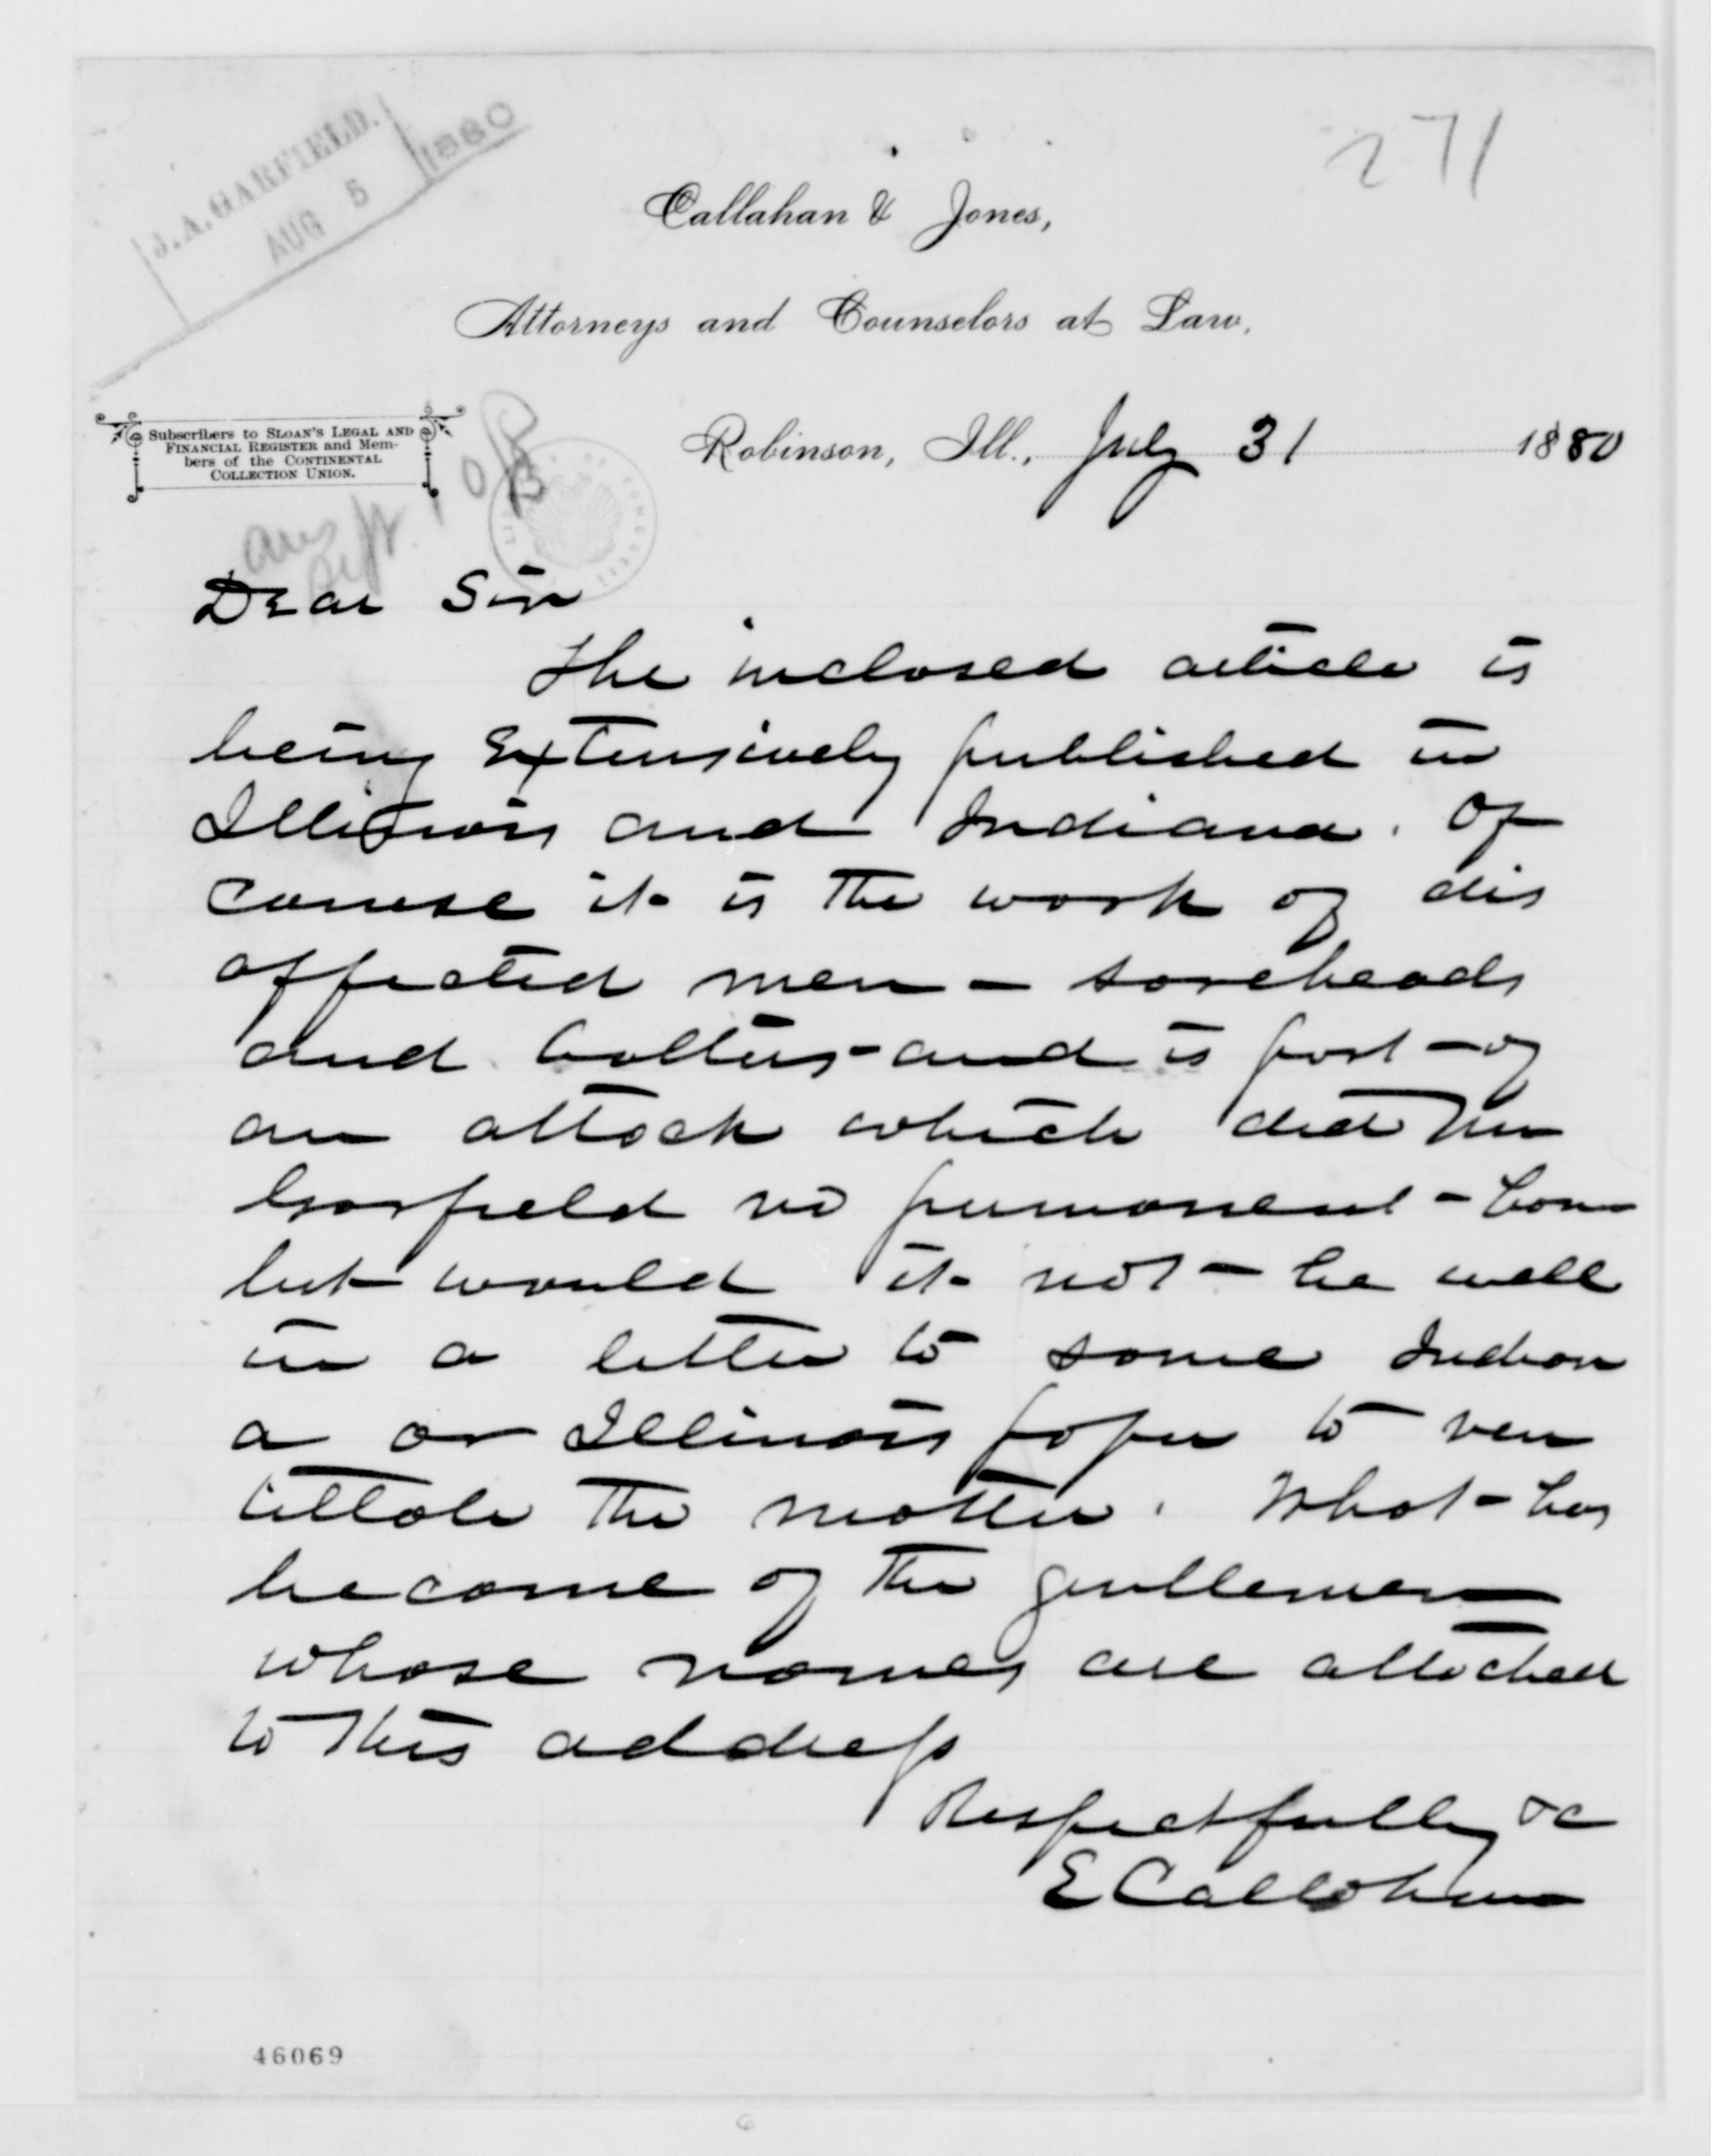 J.A. GARFIELD.
AUG 5 1880
271
Callahan & Jones,
Attorneys and Counselors at Law,
Subscribers to SLOAN'S LEGAL AND
FINANCIAL REGISTER and Mem-
bers of the CONTINENTAL
COLLECTION UNION.
Robinson, Ill., July 31 1880
Ans
Sept. 10
Dear Sir
The inclosed article is
being Extensively published in
Illinois and Indiana. Of
course it is the work of dis
affected men - soreheads
and bolters - and is part of
an attack which did Mr
Garfield no permanent harm
but would it not be well
in a letter to some Indian
a or Illinois paper to ven
tillate the matter. What has
become of the gentlemen
whose names are attached
to this address
Respectfully &c
E Callahan
46069